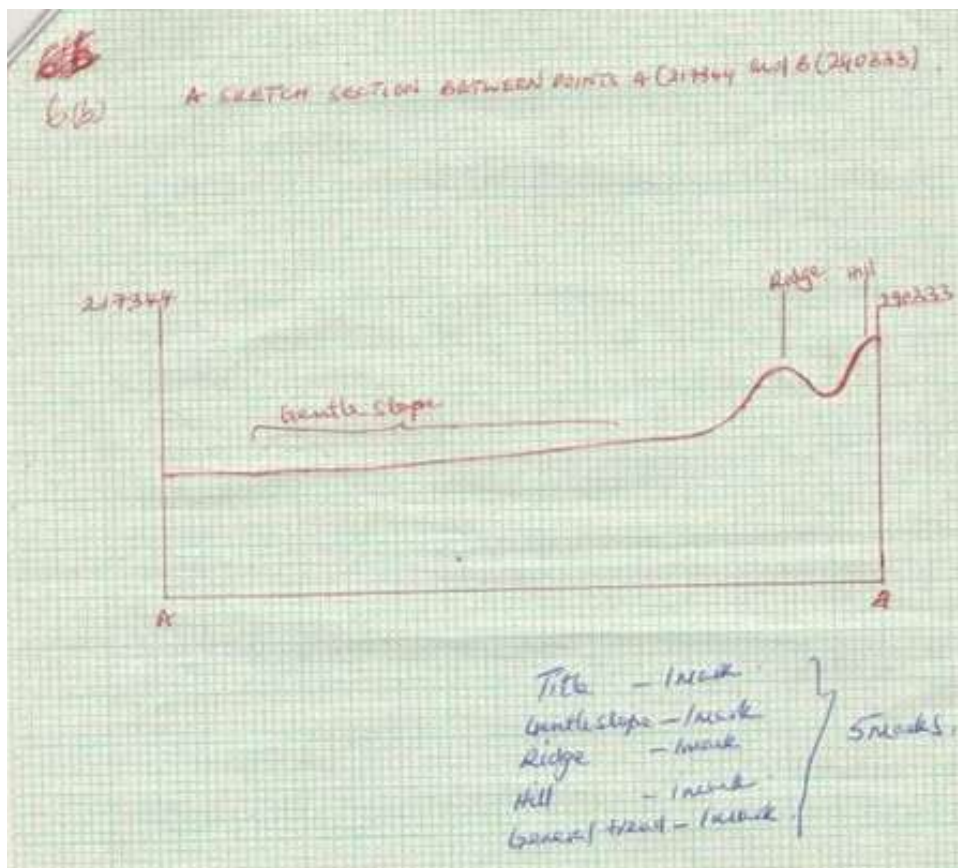 6(b)
A SKETCH SECTION BETWEEN POINTS A (217344 and B (290333).
Ridge Hill
217344 290333
Gentle slope
A B
Title – 1 mark
Gentle slope – 1 mark
Ridge – 1 mark
5 marks.
Hill – 1 mark
General trend – 1 mark